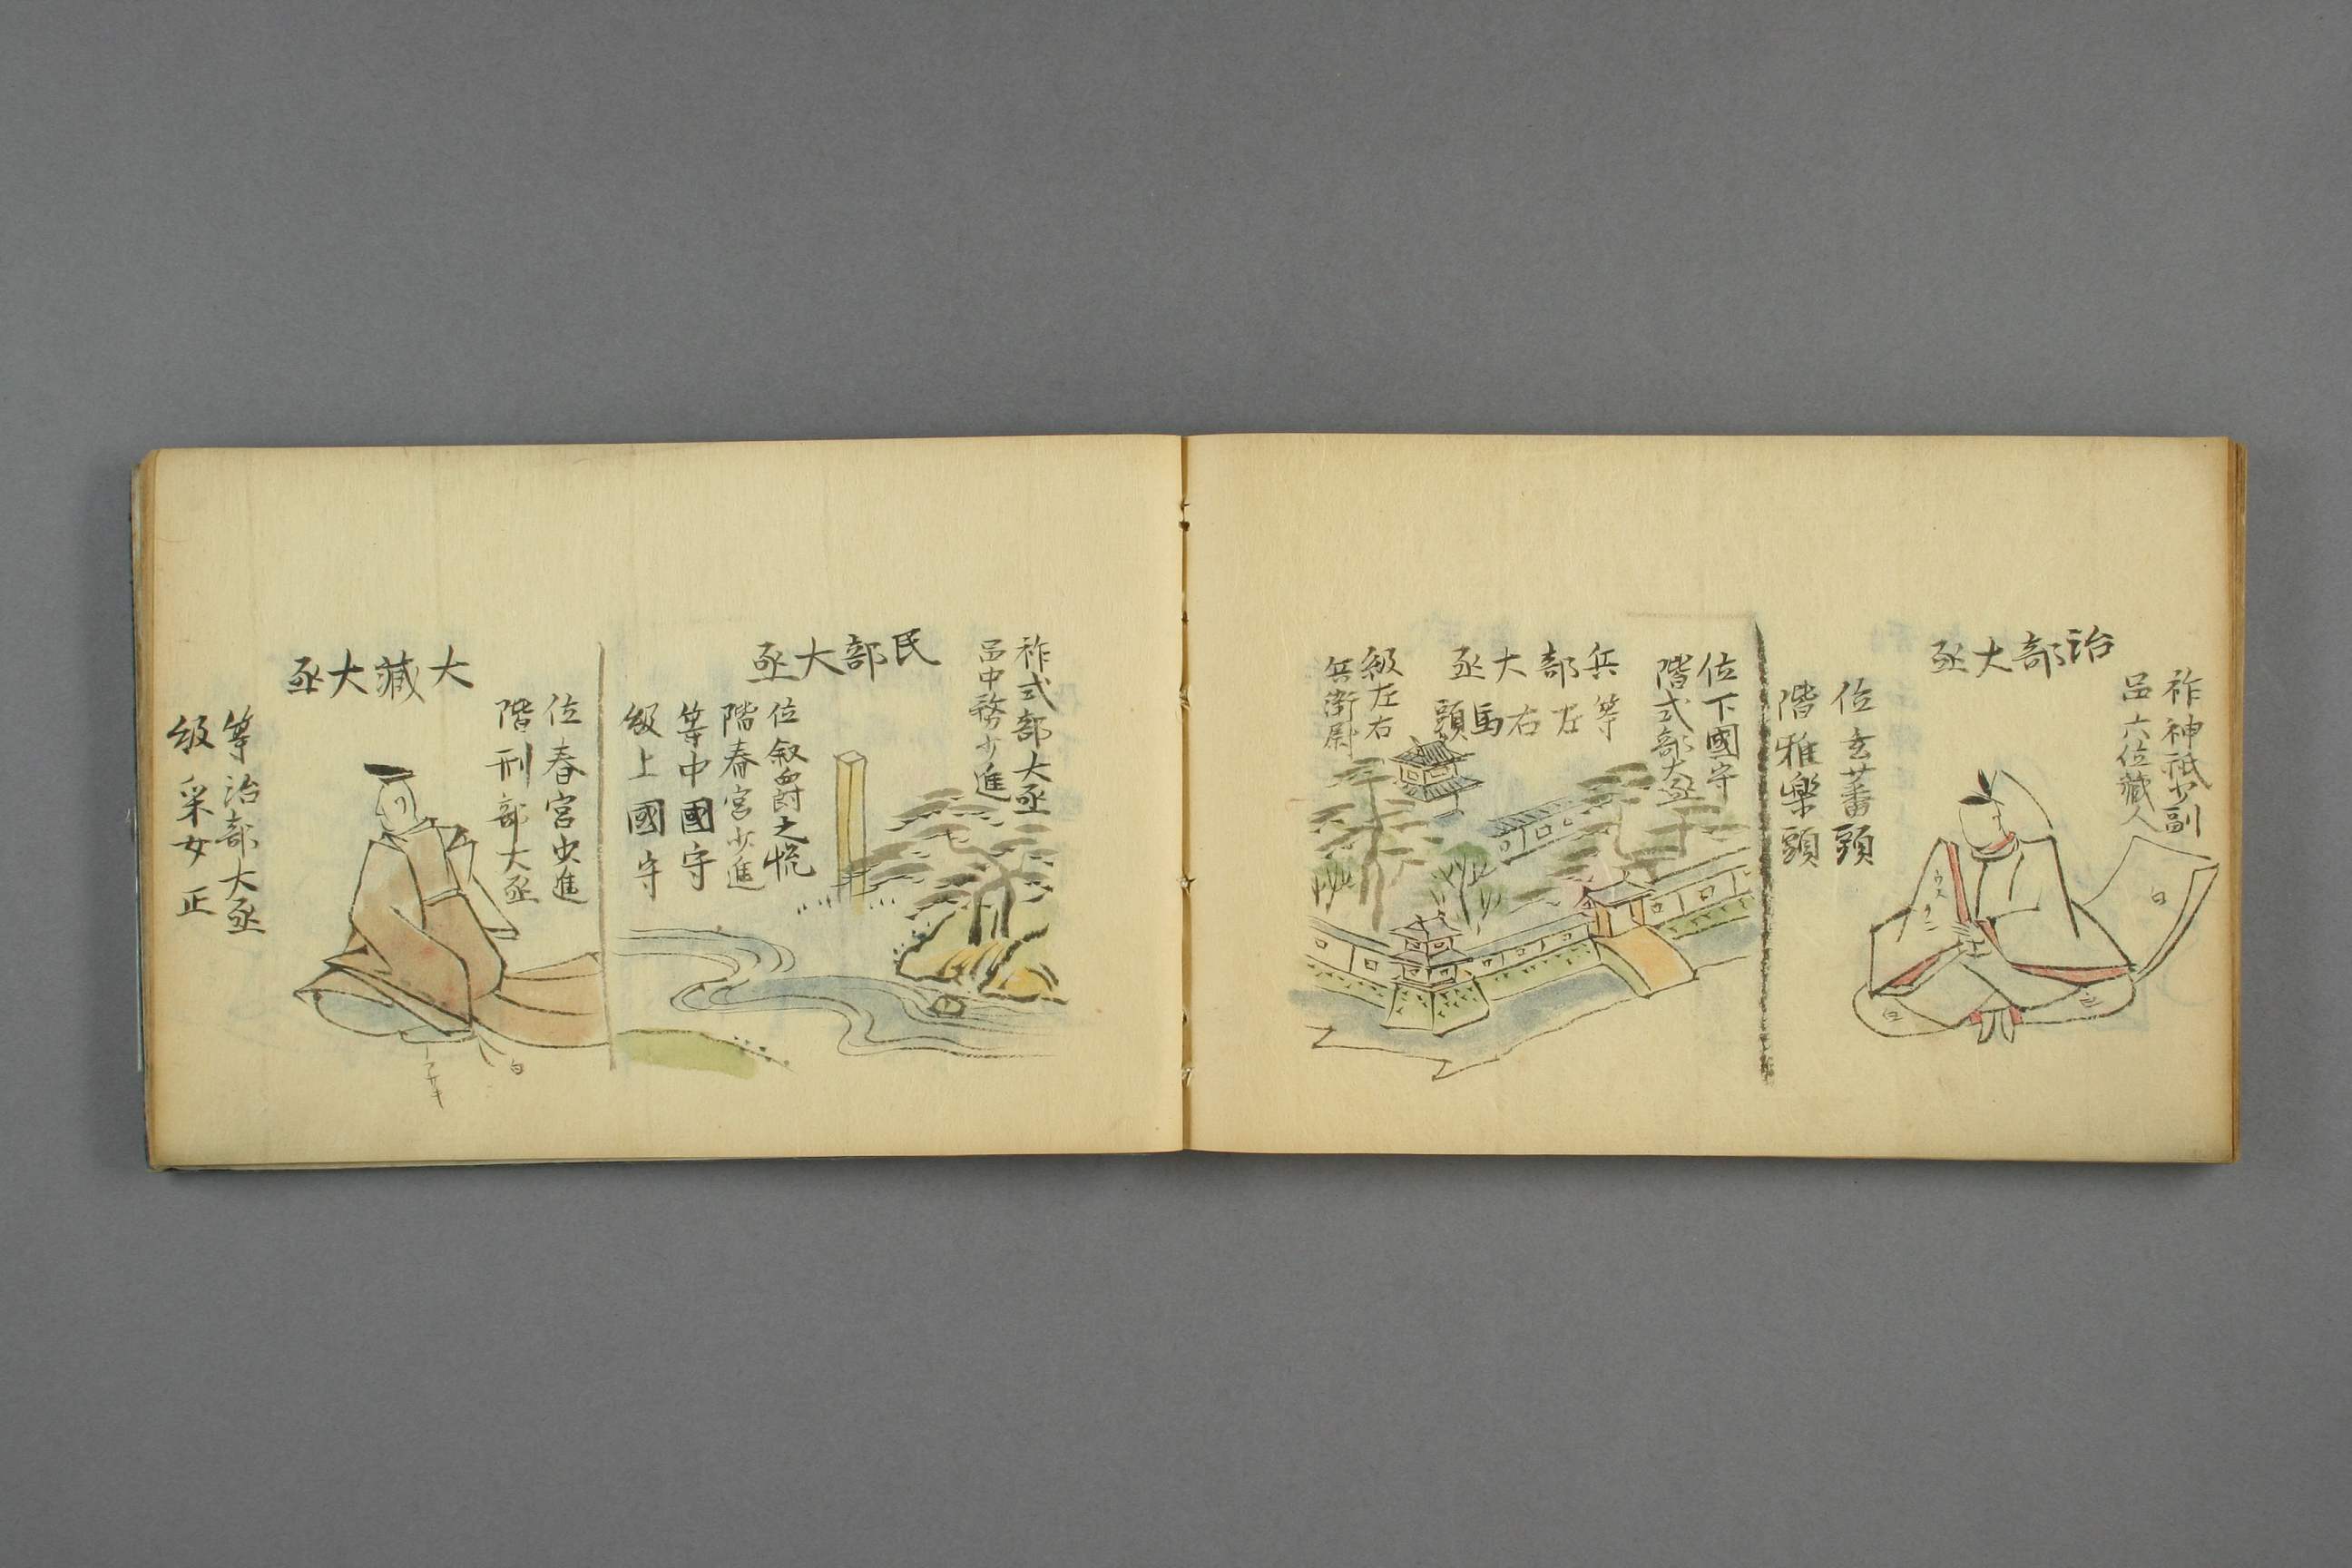 治部大丞
祚神祇少副
品六位藏人
位玄蕃頭
階雅樂頭
ウス
白
白
位下國守
階式部大丞
兵部大丞
等左右馬頭
級左右
兵衛尉
祚式部大丞
品中務少進
民部大丞
位叙爵之
階春宮少進
等中國守
級上國守
位春宮少進
階刑部大丞
大藏大丞
白
等治部大丞
級采女正